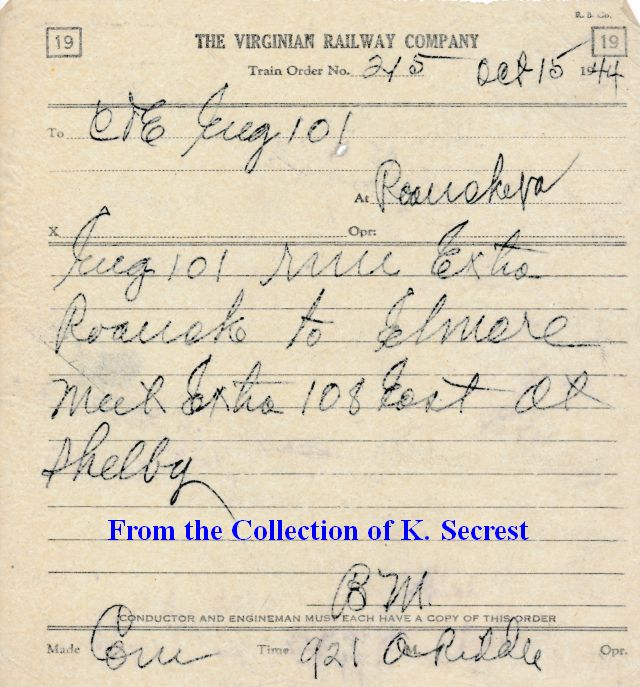 R. B. Co.
19 THE VIRGINIAN RAILWAY COMPANY 19
Train Order No. 215 Oct 15 1944
To C&E Eng 101
At Roanoke Va
X Opr:
Eng 101 run Extra
Roanoke to Elmore
Meet Extra 108 East at
Shelby
From the Collection of K. Secrest
B M.
CONDUCTOR AND ENGINEMAN MUST EACH HAVE A COPY OF THIS ORDER
Made Com Time 921 A M. Riddle Opr.